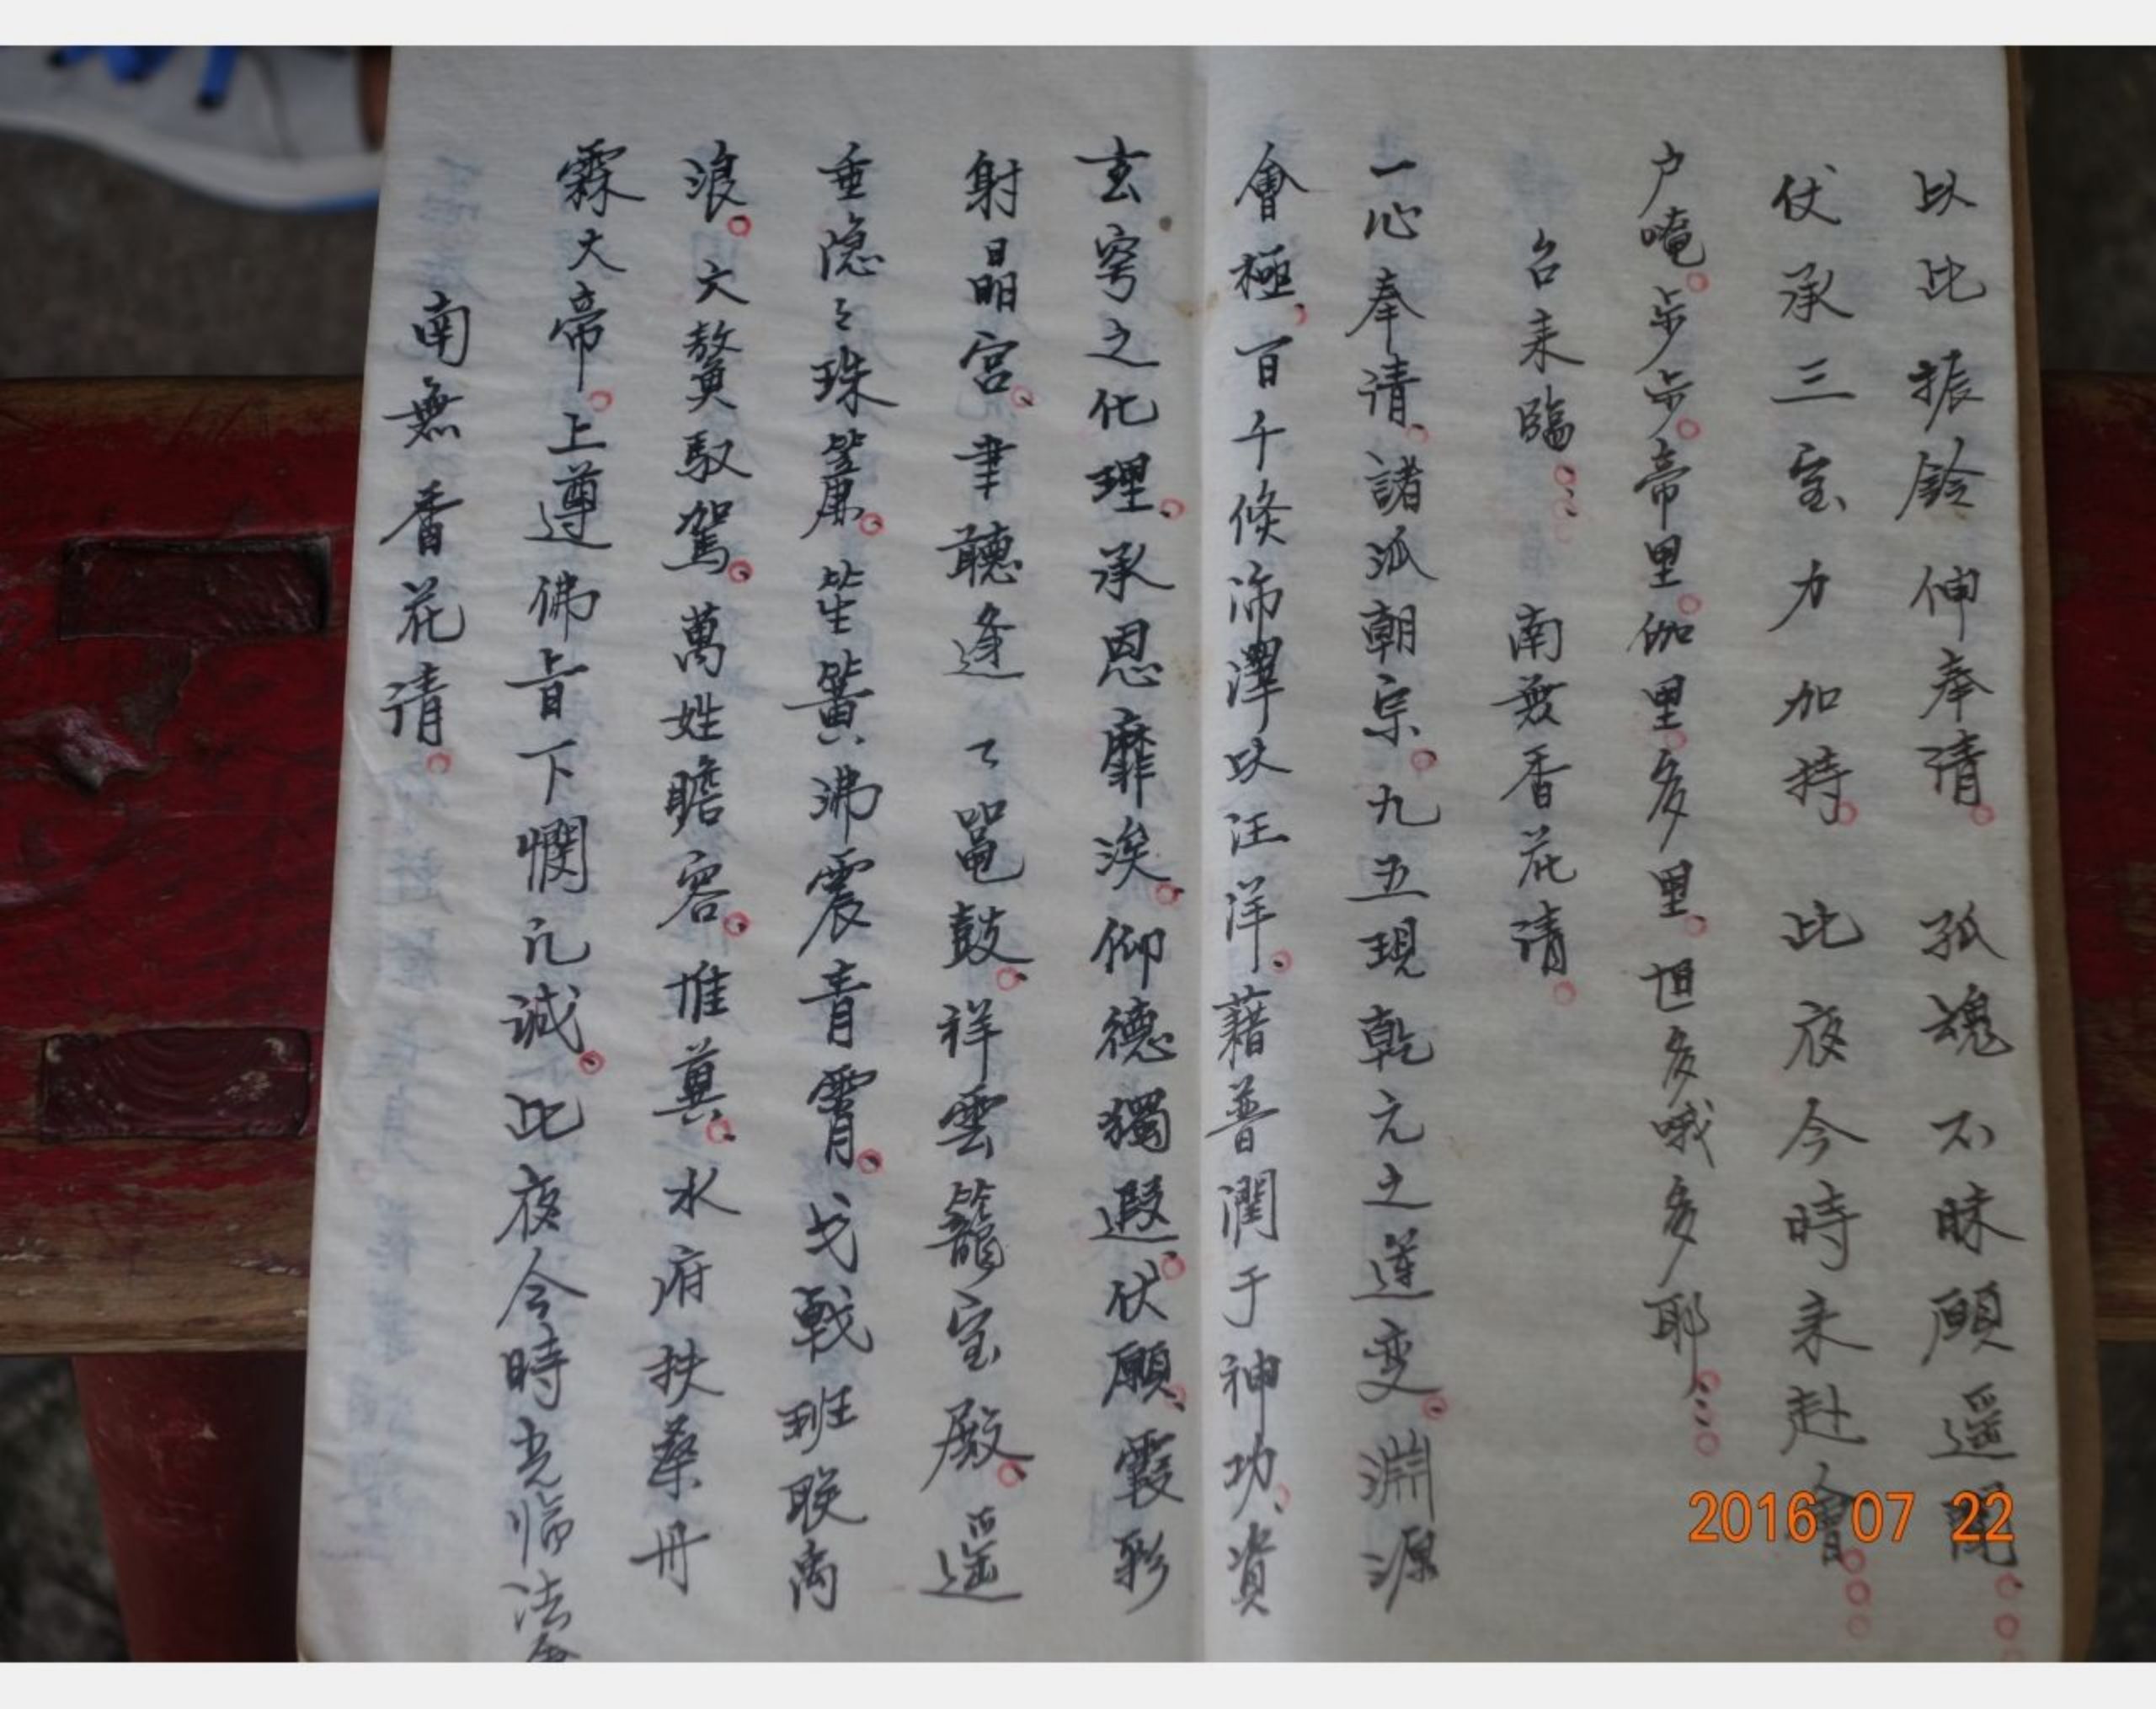 以此振鈴伸奉请。孤魂不昧願遥聞。
伏承三宝力加持。此夜今時来赴會。
户唵。步步。帝里。伽里。多里。怛多哦多耶。
召来臨。南無香花请。
一心奉请、諸派朝宗。九五現乾元之運变。淵源
會極、百千條沛澤以汪洋。藉普潤于神功、資
玄穹之化理。承恩靡涘。仰德獨遐。伏願、霞彩
射晶宫。聿聽逢々鼍鼓。祥雲籠宝殿。遥
垂隐々珠簾。笙簧沸震青霄。戈戟班联离
浪。六鰲馭駕。萬姓瞻容。惟奠。水府扶桑丹
霖大帝。上遵佛旨下憫凡誠。此夜今時光临法會
南無香花请。
2016 07 22